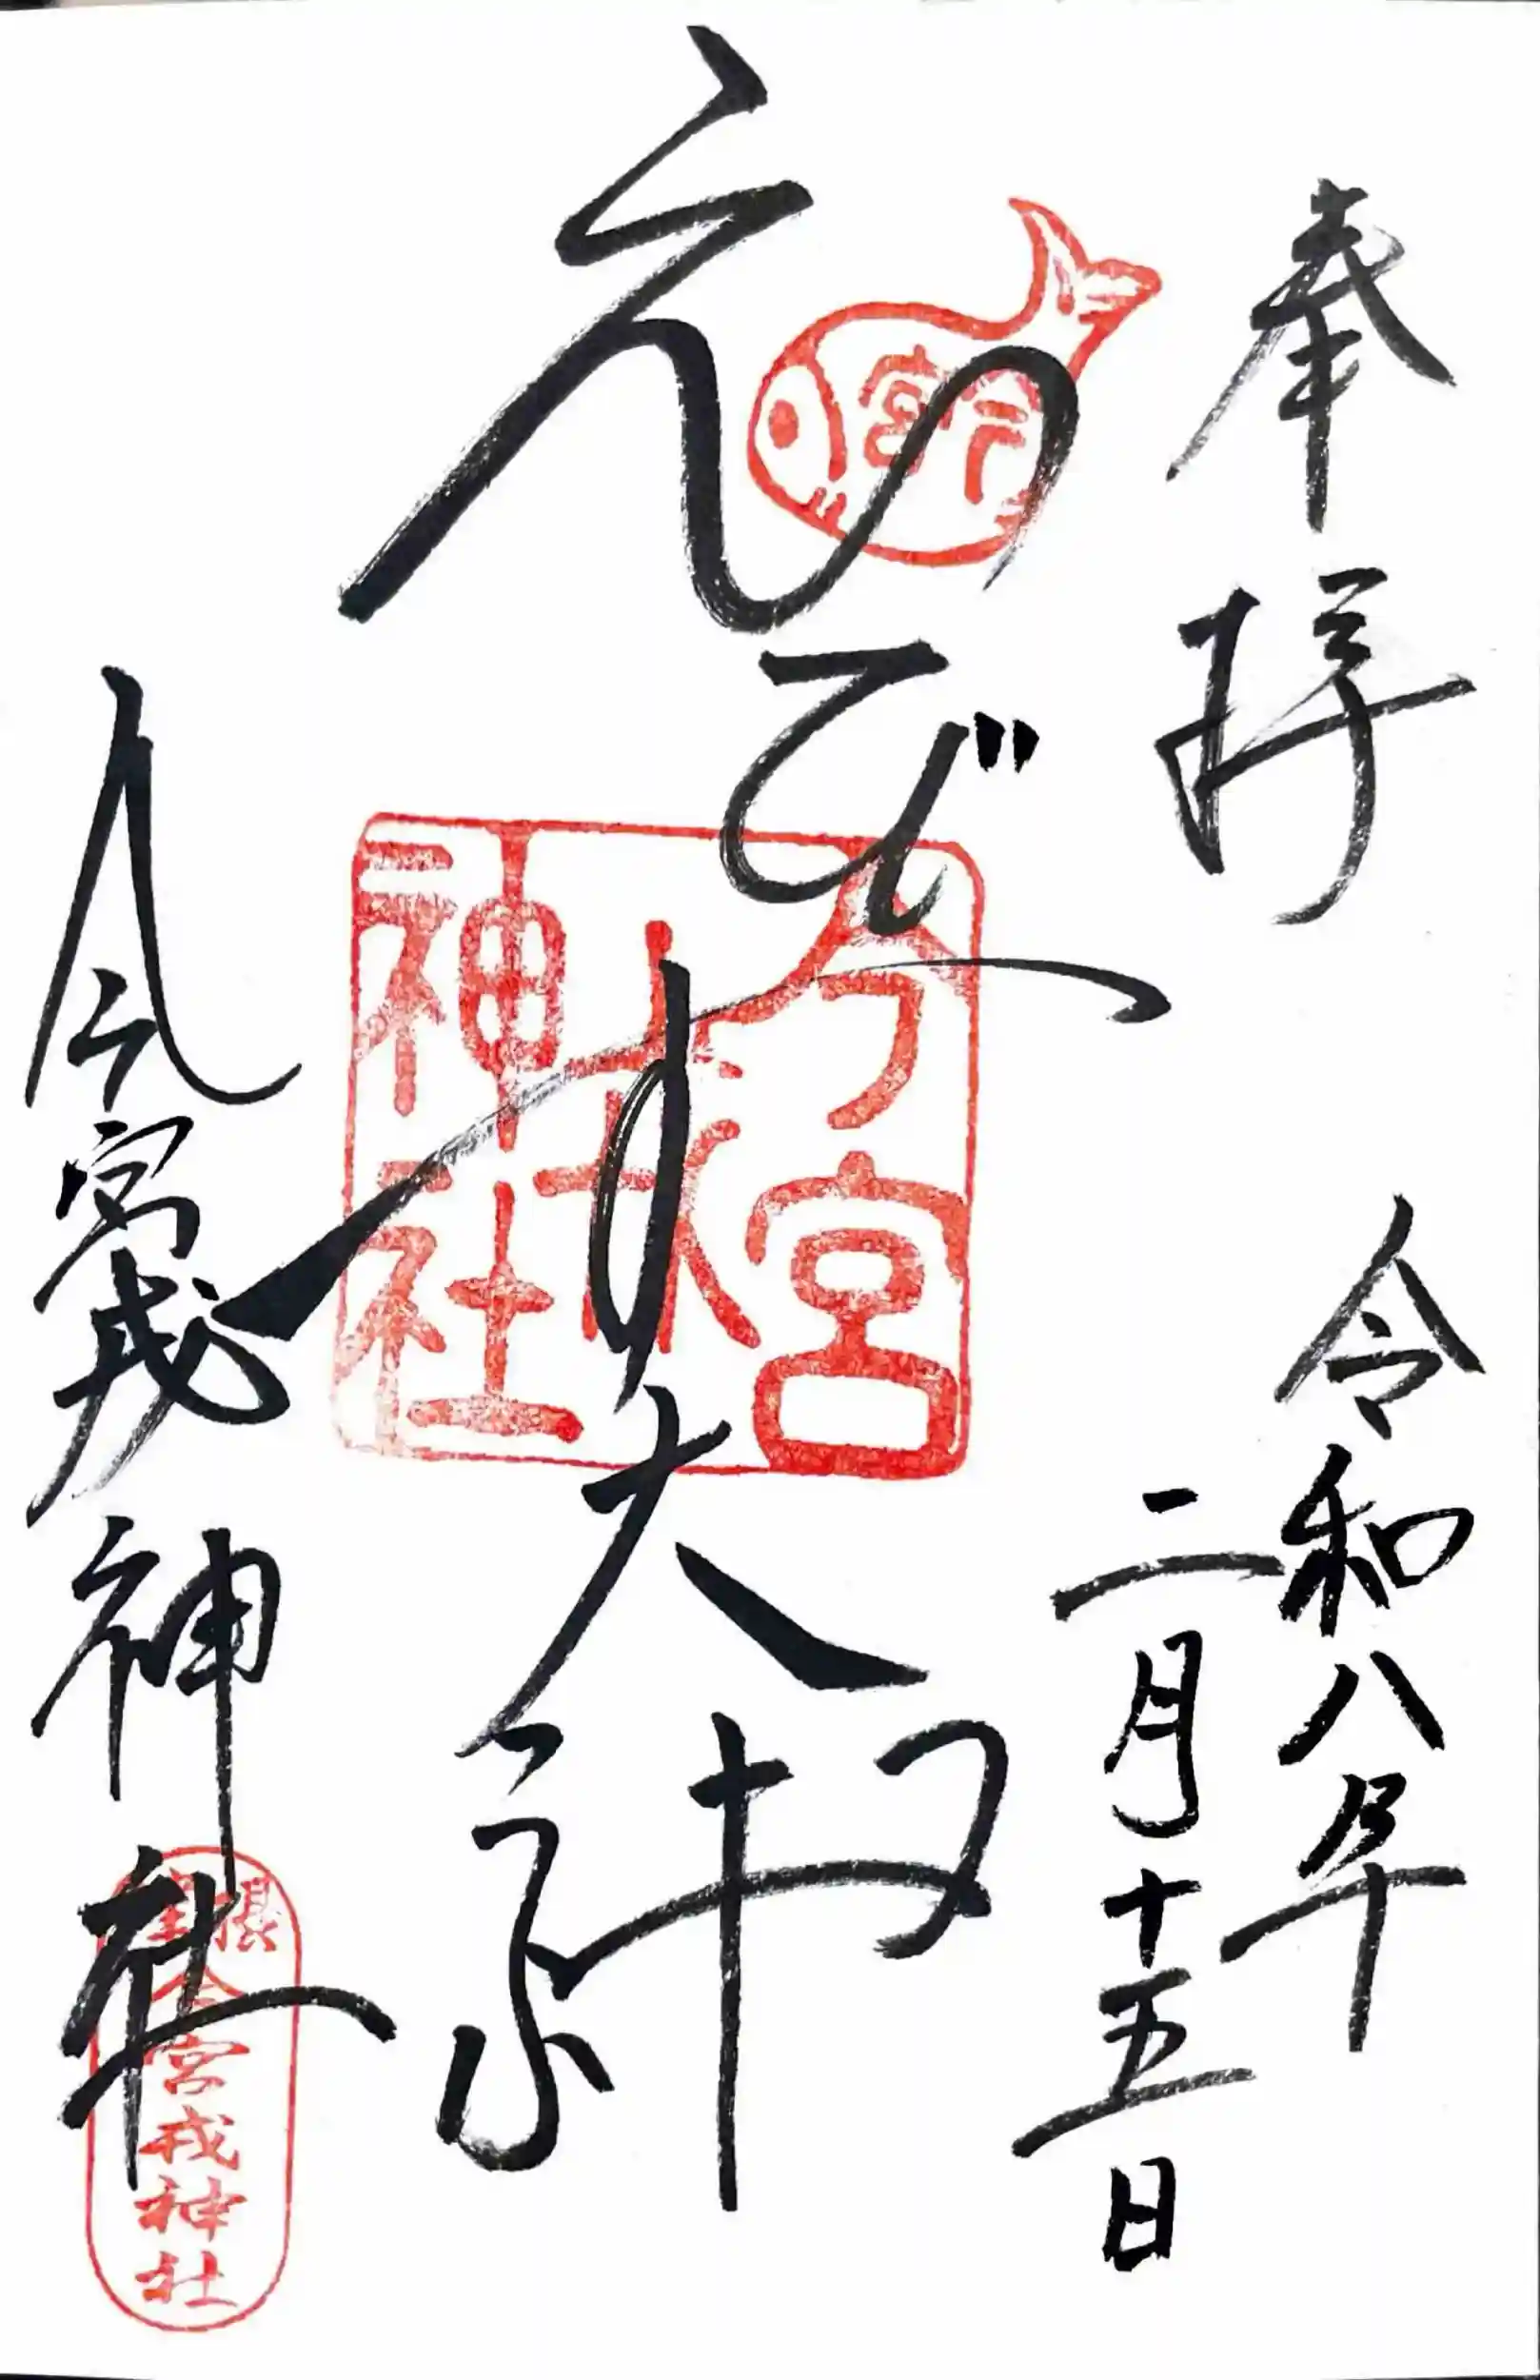 奉拝
令和八年
二月十五日
今宮
えびす大神
今宮戎神社
今宮戎神社
今宮戎神社